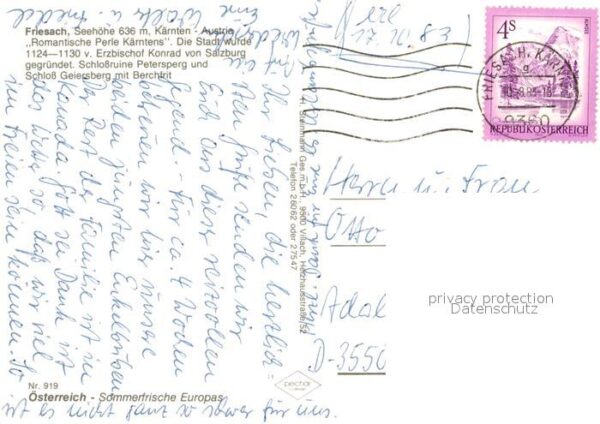 Friesach, Seehöhe 636 m, Kärnten - Austria
„Romantische Perle Kärntens". Die Stadt wurde
1124—1130 v. Erzbischof Konrad von Salzburg
gegründet. Schloßruine Petersperg und
Schloß Geiersberg mit Berchfrit
Ihr Lieben, die herzlich-
sten Grüße senden wir
Euch aus dieser reizvollen
Gegend. Für ca. 4 Wochen
betreuen wir hier unsere
beiden jüngsten Enkelbuben
Der Rest der Familie ist in
Kanada. Gott sei Dank ist
das Wetter so daß wir viel
im Freien sein können. So
ist es nicht ganz so schwer für uns.
17.10.83
4S
REPUBLIK ÖSTERREICH
FRIESACH, KÄRNTEN
9360
H. Steinhart Ges.m.b.H., 9500 Villach,
Telefon 28062 oder 27547
Herrn u. Frau
Otto
Adol
D-3550
privacy protection
Datenschutz
Nr. 919
Österreich - Sommerfrische Europas